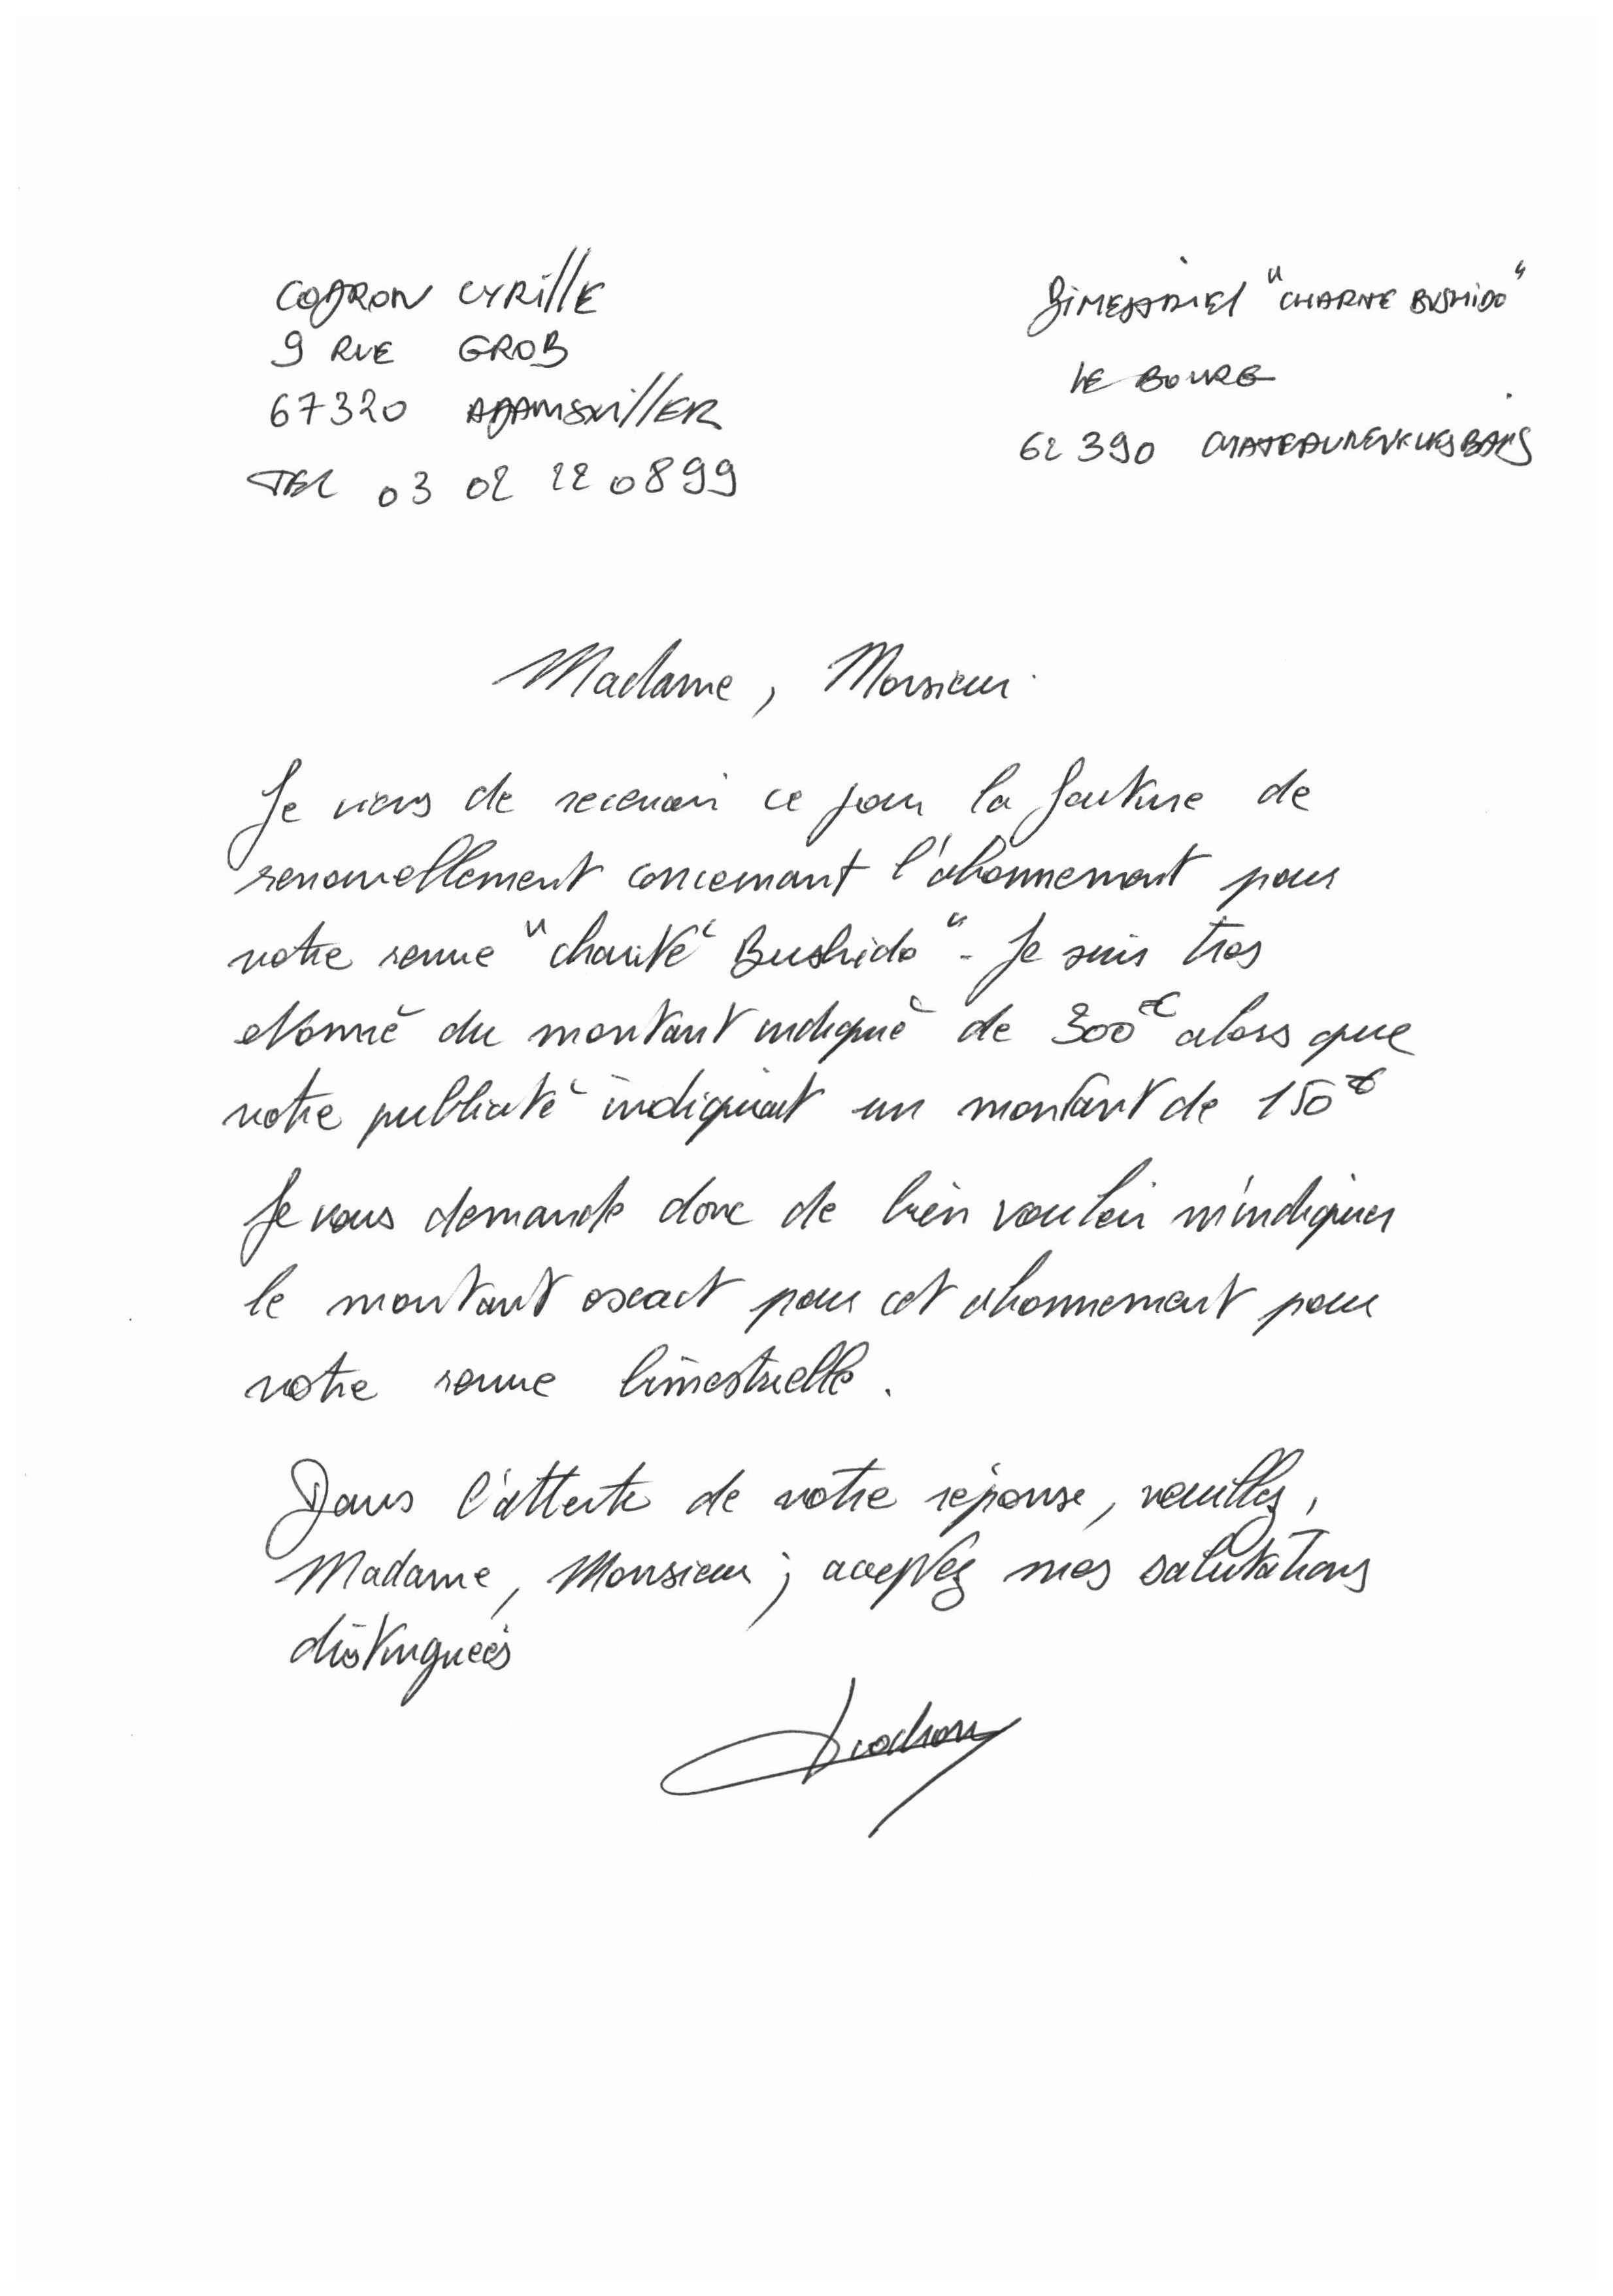 CYRILLE
9 RUE GROB
67320 ADAMSWILLER
TEL 03 02 22 0899
BIMESTRIEL "CHARITE BUSHIDO"
LE BOURG
62 390
Madame, Monsieur
Je viens de recevoir ce jour la facture de
renouvellement concernant l'abonnement pour
votre revue "charité Bushido". Je suis tres
etonné du montant indiqué de 300€ alors que
votre publicité indiquait un montant de 150€
Je vous demande donc de bien vouloir m'indiquer
le montant exact pour cet abonnement pour
votre revue bimestrielle.
Dans l'attente de votre réponse, veuillez,
Madame, Monsieur, acceptez mes salutations
distinguées